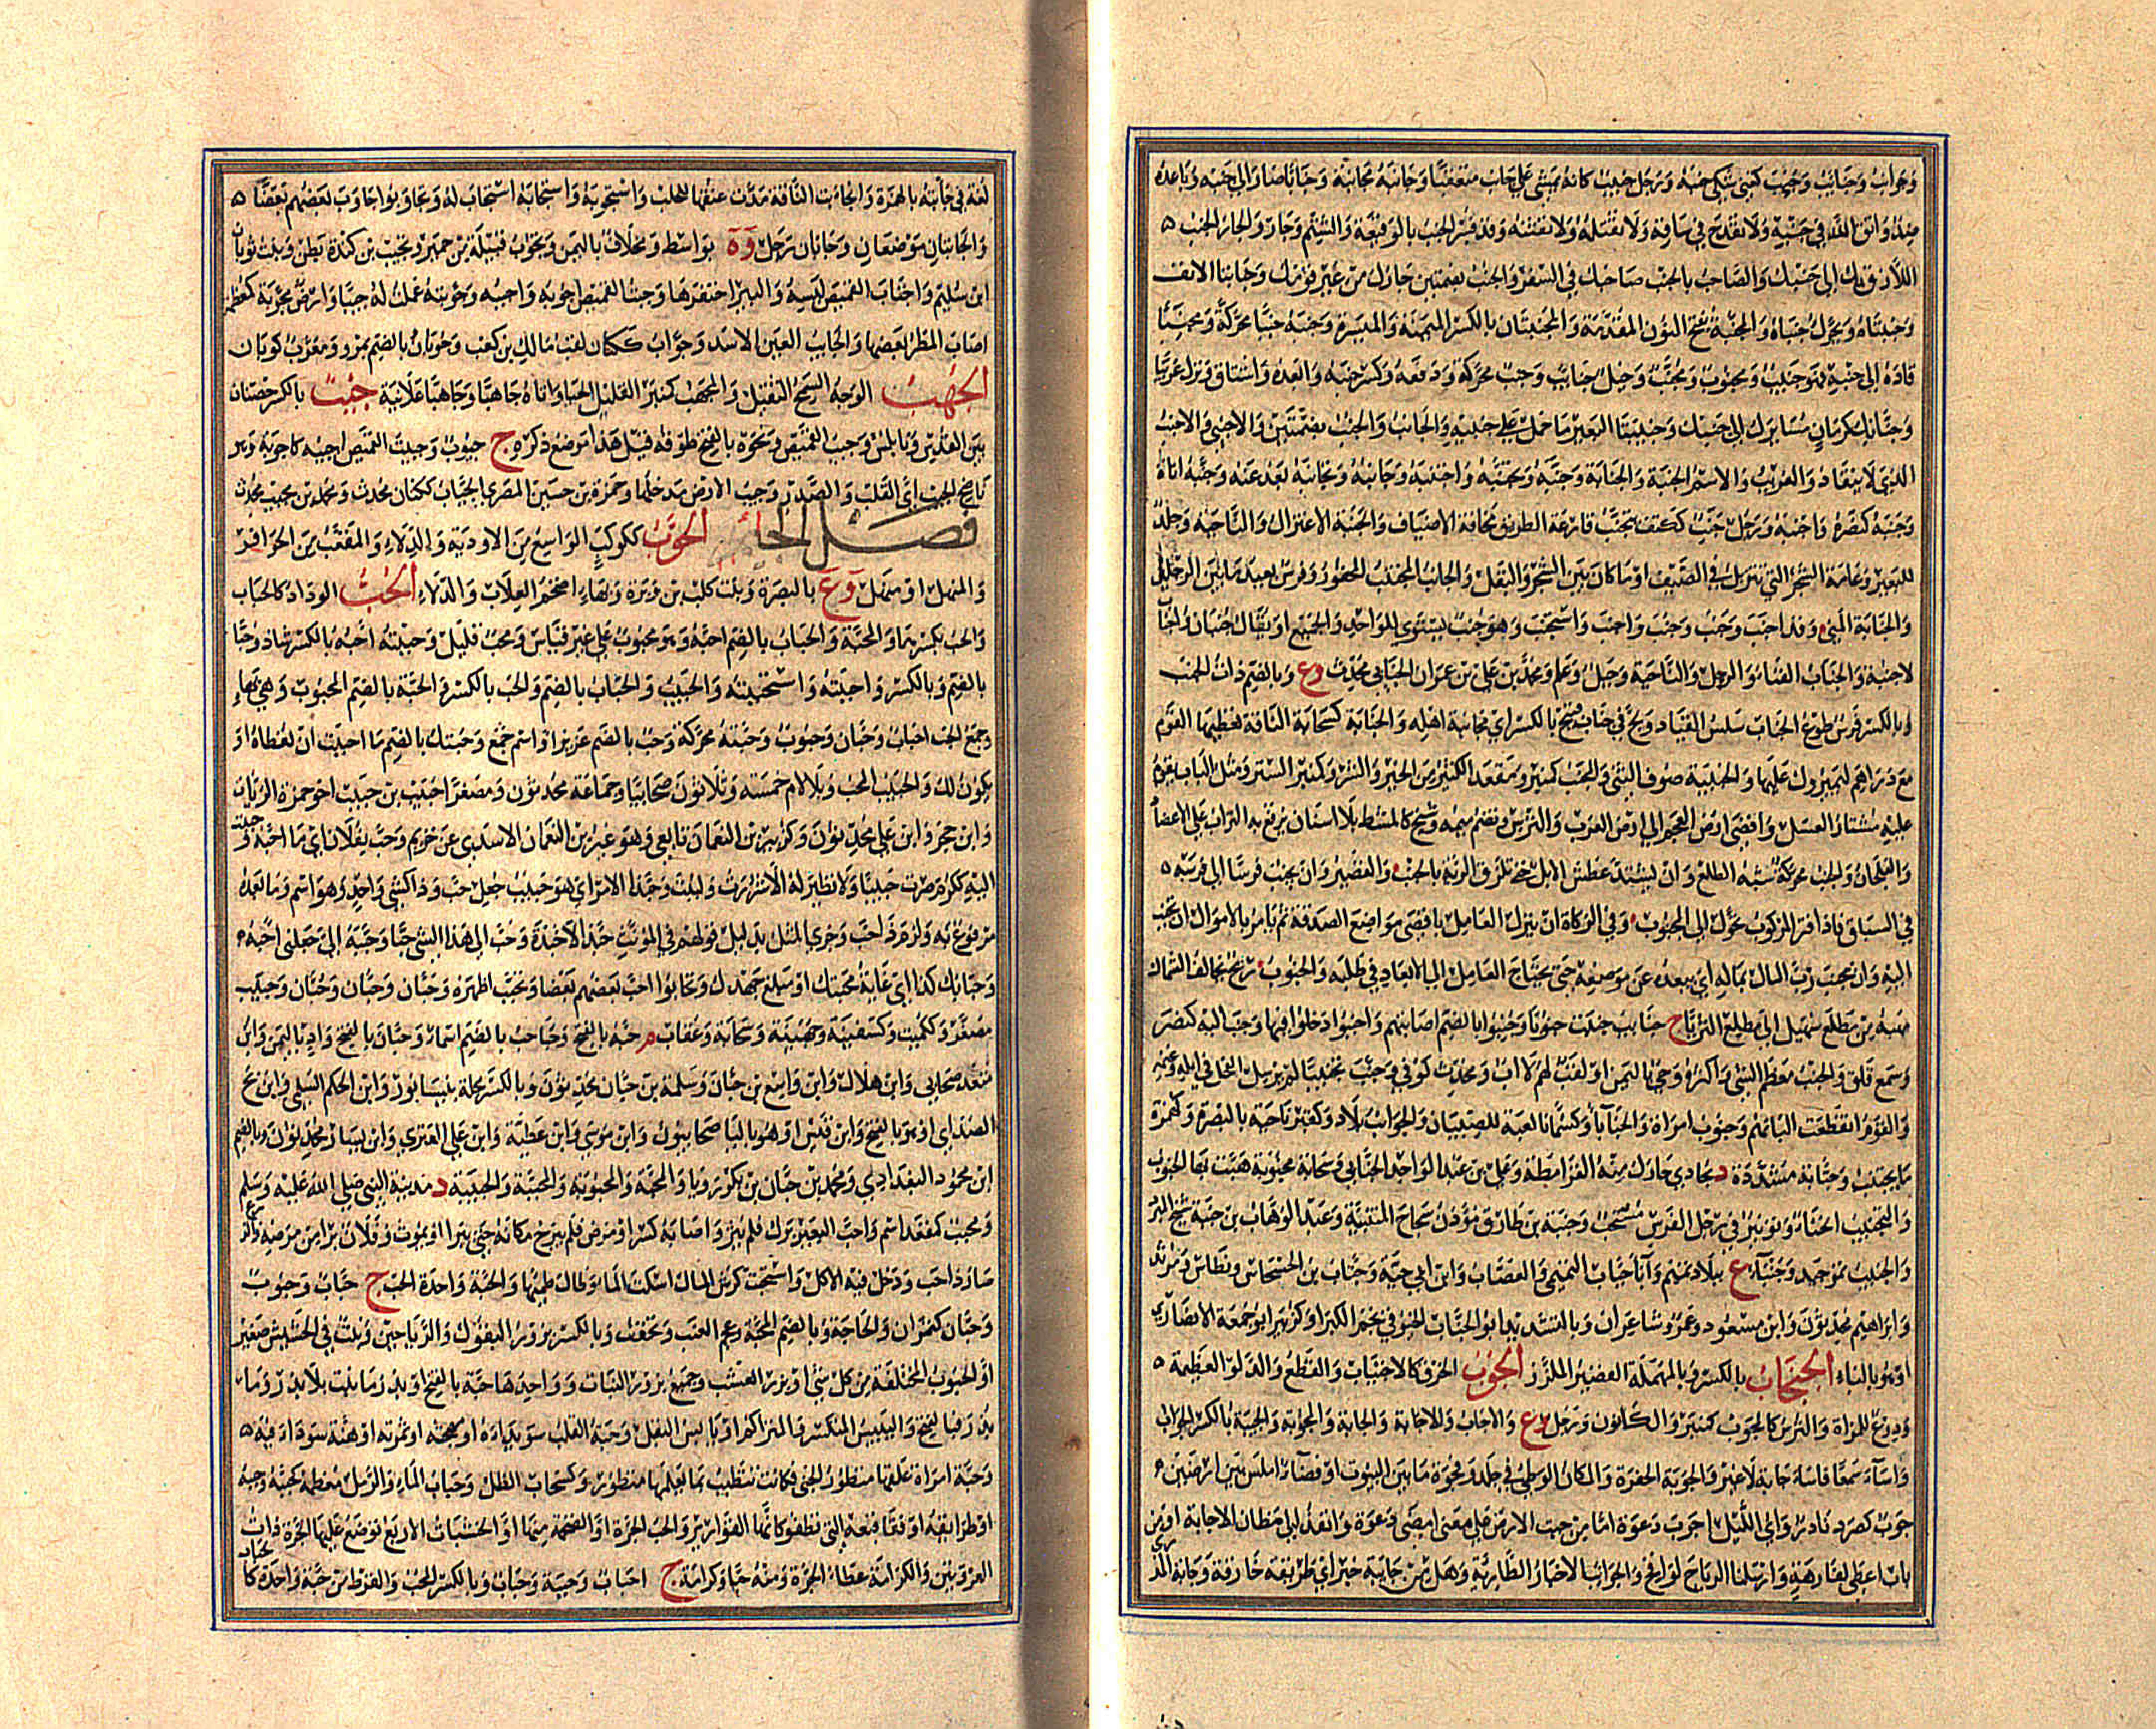 وجوانب وجنائب وجنب كعني شكى جنبه ورجل جنيب كانه يمشي على جانب متعقبا وجانبه مجانبة وجنابا صار الى جنبه وباعده
ضد واتق الله في جنبه ولا تقدح في ساقه ولا تقتله ولا تفتنه وقد فسر الجنب بالوقيعة والشتم وجار والجار الجنب ه
اللازق بك الى جنبك والصاحب بالجنب صاحبك في السفر والجنب بضمتين جارك من غير قومك وجنابتا الانف
وجنبتاه ويحرك جنباه والمجنبة بفتح النون المقدمة والمجنبتان بالكسر الميمنة والميسرة وجنبه جنبا محركة ومجنبا
قاده الى جنبه فهو جنيب ومجنوب ومجنب وخيل جنائب وجنب محركة ودفعه وكسر جنبه وابعده واشتاق ونزل غريبا
وجنابك كرمان مسايرك الى جنبك وجنيبتا البعير ما حمل على جنبيه والجانب والجنب بضمتين والاجنبي والاجنب
الذي لا ينقاد والغريب والاسم الجنبة والجنابة وجنبه وتجنبه واجتنبه وجانبه وتجانبه بعد عنه وجنبه اياه
وجنبه كنصره واجنبه ورجل جنب ككتف يتجنب قارعة الطريق مخافة الاضياف والجنبة الاعتزال والناحية وجلد
للبعير وعامة الشجر التي تتربل في الصيف او ما كان بين الشجر والبقل والجانب المجتنب المحقور وفرس بعيد ما بين الرجلين
والجنابة المني وقد اجنب وجنب وجنب واجنب واستجنب وهو جنب يستوي للواحد والجميع او يقال جنبان واجناب
لا جنبة والجناب الفناء والرحل والناحية وجبل وعلم ومحمد بن علي بن عمران الجنابي محدث وع وبالضم ذات الجنب
وبالكسر فرس طوع الجناب سلس القياد ولج في جناب قبيح بالكسر اي مجانبة اهله والجنابة كسحابة الناقة تعطيها القوم
مع دراهم ليميروك عليها والجنيبة صوف الثني والمجنب كمنبر ومقعد الكثير من الخير والشر وكمنبر الستر ومثل الباب يقوم
عليه مشتار العسل واقصى ارض العجم الى ارض العرب والترس وتضم ميمه وشبح كالمشط بلا اسنان يرفع به التراب على الاعضاد
والفلجان والجنب محركة شبه الظلع وان يشتد عطش الابل حتى تلزق الرئة بالجنب والقصير وان يجنب فرسا الى فرسه ه
في السباق فاذا فتر المركوب تحول الى المجنوب وفي الزكاة ان ينزل العامل باقصى مواضع الصدقة ثم يامر بالاموال ان تجنب
اليه وان يجنب رب المال بماله اي يبعده عن موضعه حتى يحتاج العامل الى الابعاد في طلبه والجنوب ريح تخالف الشمال
مهبه من مطلع سهيل الى مطلع الثريا ج جنائب جنبت جنوبا وجنبوا بالضم اصابتهم واجنبوا دخلوا فيها وجنب اليه كنصر
وسمع قلق والجنب معظم الشي واكثره وحي باليمن او لقب لهم لا اب ومحدث كوفي وجنب تجنيبا لم يرسل الفحل في ابله وغنمه
والقوم انقطعت البانهم وجنوب امراة والجنابا وكسماني لعبة للصبيان والجواب بلاد وكقبر ناحية بالبصرة وكهمزة
ما يجتنب وجنابة مشددة د بحاذي خارك منه القرامطة وعلي بن عبد الواحد الجنابي وسحابة مجنوبة هبت بها الجنوب
والتجنيب انحناء وتوتير في رجل الفرس مستحب وجنبة بن طارق مؤذن سجاح المتنبية وعبد الوهاب بن جنبة شيخ المبرد
والجنيب تمر جيد وجنباء ع ببلاد تميم وآباء جناب التميمي والقصاب وابن ابي حية وجناب بن الحسحاس ونسطاس ومرثد
وابراهيم محدثون وابن مسعود وعمرو شاعران وبالتشديد ابو الجناب الخيوقي نجم الكبرا وكزبير ابو جمعة الانصاري
او هو بالباء الجنحاب بالكسر وبالمهملة القصير الملزز الجوب الخرق كالاجتياب والقطع والدلو العظيمة ه
ودرع للمراة والترس كالمجوب كمنبر والكانون ورجل وع والاجاب والاجابة والجابة والمجوبة والجيبة بالكسر الجواب
واساء سمعا فاساء جابة لا غير والجوبة الحفرة والمكان الوطي في جلد وفجوة ما بين البيوت او فضاء املس بين ارضين م
جوب كصرد نادر واي الليل اجوب دعوة اما من جبت الارض على معنى امضى دعوة وانفذ الى مظان الاجابة او من
باب اعطى لفارهة وارسلنا الرياح لواقح والجوائب الاخبار الطارئة وهل من جائبة خبر اي طريفة خارقة وجابة المدرى
لغة في جابته بالهمزة وانجابت الناقة مدت عنقها للحلب واستجوبه واستجابه استجاب له وتجاوبوا جاوب بعضهم بعضا ه
والجابتان موضعان وجابان رجل وة بواسط ومخلاف باليمن وتجوب قبيلة من حمير وتجيب بن كندة بطن وبنت ثوبان
ابن سليم واجتاب القميص لبسه والبير احتفرها وجبت القميص اجوبه واجيبه وجوبته عملت له جيبا وارض مجوبة كمعظم
اصاب المطر بعضها والجايب العين الاسد وجواب ككتان لقب مالك بن كعب وجوبان بالضم بمرو ومعرب كوبان
الجهب الوجه السمج الثقيل والمجهب كمنبر القليل الحيا واتاه جاهبا وجاهبا علانية جيب بالكسر حصنان
بين القدس ونابلس وجيب القميص ونحوه بالفتح طوقه قيل هذا موضع ذكره ج جيوب وجيبت القميص اجيبه كاجوبه وهو
ناصح الجيب اي القلب والصدر وجيب الارض مدخلها وحمزة بن حسين المصري الجياب ككتان محدث ومحمد بن مجيب محدث
فصل الحاء الحوب ككوكب الواسع من الاودية والدلاء والمقعب من الحوافر
والمنهل او منهل وع بالبصرة وبنت كلب بن وبرة وبهاء اضخم العلاب والدلاء الحب الوداد كالحباب
والحب بكسرهما والمحبة والحباب بالضم احبه وهو محبوب على غير قياس ومحب قليل وحببته احبه بالكسر شاذ وحبا
بالضم وبالكسر واحببته واستحببته والحبيب والحباب بالضم والحب بالكسر والحبة بالضم المحبوب وهي بهاء
وجمع الحب احباب وحبان وحبوب وحببة محركة وحب بالضم عزيز او اسم جمع وحبتك بالضم ما احببت ان تعطاه او
يكون لك والحبيب المحب وبلا لام خمسة وثلاثون صحابيا وجماعة محدثون ومصغرا حبيب بن حبيب اخو حمزة الزيات
وابن حجر وابن علي محدثون وكزبير بن النعمان تابعي وهو غير بن النعمان الاسدي عن خريم وحب بفلان اي ما احبه وحببت
اليه ككرم صرت حبيبا ولا نظير له الا شررت ولببت وحبذا الامر اي هو حبيب جعل حب وذا كشي واحد وهو اسم وما بعده
مرفوع به ولزم ذا حب وجرى كالمثل بدليل قولهم في المؤنث حبذا لا حبذة وحب الي هذا الشي حبا وحببه الي جعلني احبه م
وحبابك كذا اي غاية محبتك او مبلغ جهدك وتحابوا احب بعضهم بعضا وتحبب اظهره وحبان وحبان وحبان وحبيب
مصغر وككميت وكسفينة وجهينة وسحابة وعقاب م حبه بالفتح وحباحب بالضم اسماء وحبان بالفتح واد باليمن وابن
منقذ صحابي وابن هلال وابن واسع بن حبان وسلمة بن حبان محدثون وبالكسر محلة بنيسابور وابن الحكم السلمي وابن بح
الصداي او هو بالفتح وابن قيس او هو بالياء صحابيون وابن موسى وابن عطية وابن علي العنزي وابن يسار محدثون وبالضم
ابن محمود البغدادي ومحمد بن حبان بن بكر رويا والمحبة والمحبوبة والمحببة والحبيبة د مدينة النبي صلى الله عليه وسلم
ومحبب كمقعد اسم واحب البعير برك فلم يثر او اصابه كسر او مرض فلم يبرح مكانه حتى يبرا او يموت وفلان برا من مرضه والزرع
صار ذا حب ودخل فيه الاكل واستحبت كرش المال امسكت الماء وطال ظمئها والحبة واحدة الحب ج حبات وحبوب
وحبان كتمران والحاجة وبالضم المحبة وعجم العنب وتخفف وبالكسر بزور البقول والرياحين ونبت في الحشيش صغير
او الحبوب المختلفة من كل شي او بزر العشب وجميع بزور النبات وواحدها حبة بالفتح او بذر ما نبت بلا بذر وما
بذر فبالفتح واليبيس المتكسر والمتراكم او يابس البقل وحبة القلب سويداؤه او مهجته او ثمرته او هنة سوداء فيه ه
وحبة امراة علقها منظور الجني فكانت تتطبب بما يعلمها منظور وكسحاب الطل وحباب الماء والرمل معظمه كحببه وحبه
او طرائقه او فقاقيعه التي تطفو كانها القوارير والحب الجرة او الضخمة منها او الخشبات الاربع توضع عليها الجرة ذات
العروتين والكرامة غطاء الجرة ومنه حبا وكرامة ج احباب وحببة وحباب وبالكسر المحب والقرط من حبة واحدة كالحباب